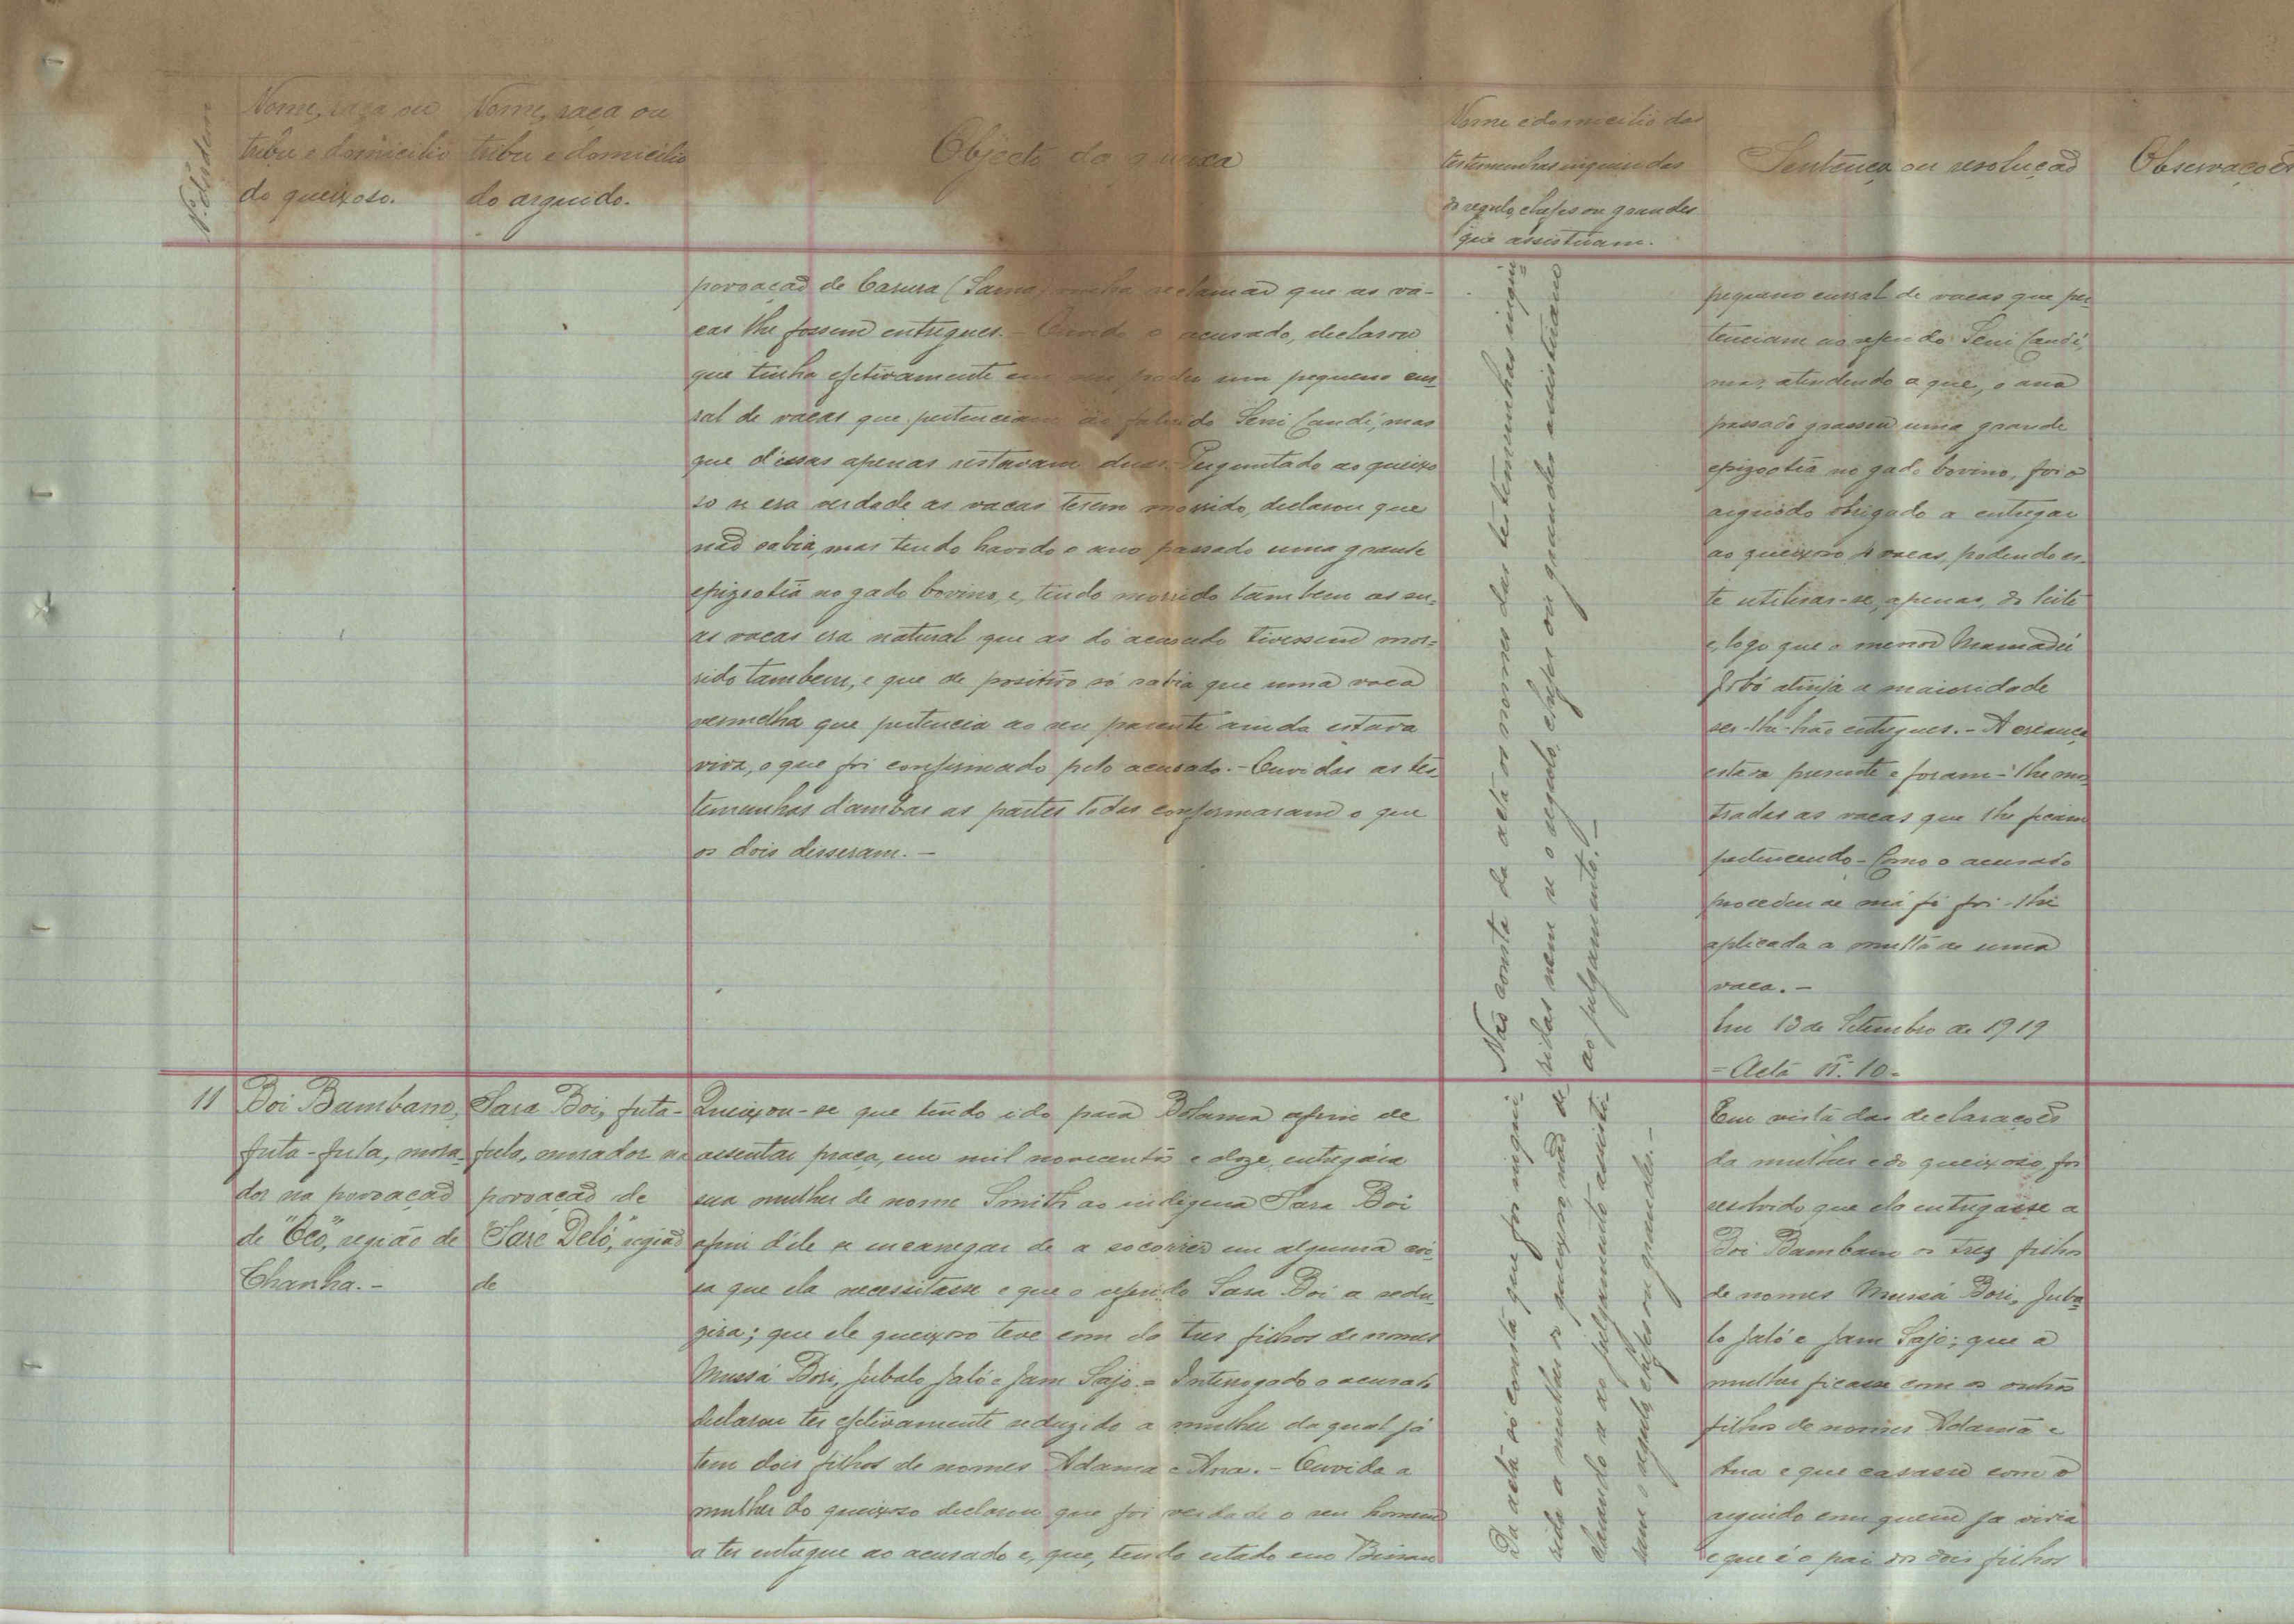 Nº d'ordem
Nome, raça ou
tribu e domicilio
do queixoso.
Nome, raça ou
tribu e domicilio
do arguido.
Objecto da queixa
Nome e domicilio das
testemunhas inquiridas
o regulo, chefes ou grandes
que assistiram.
Sentença ou resolução
Observações
povoação de Carura (Sama) vinha reclamar que as va-
cas lhe fossem entregues. - Ouvido o acusado, declarou
que tinha efetivamente em seu poder um pequeno cur-
ral de vacas que pertenciam ao falecido Seni Candí, mas
que d'essas apenas restavam duas. Perguntado ao queixo
so se era verdade as vacas terem morrido, declarou que
não sabia, mas tendo havido o ano passado uma grande
epizootia no gado bovino, e, tendo morrido tambem as su-
as vacas era natural que as do acusado tivessem mor-
rido tambem, e que de positivo só sabia que uma vaca
vermelha que pertencia ao seu parente ainda estava
viva, o que foi confirmado pelo acusado. - Ouvidas as tes
temunhas d'ambas as partes todas confirmaram o que
os dois disseram. -
Não consta da acta os nomes das testemunhas inqui-
ridas nem se o regulo, chefes ou grandes assistiram
ao julgamento. -
pequeno curral de vacas que per-
tenciam ao referido Seni Candí,
mas, atendendo a que, o ano
passado grassou uma grande
epizootia no gado bovino, foi o
arguido obrigado a entregar
ao queixoso vacas, podendo es-
te utilisar-se, apenas, do leite
e, logo que o menor Mamadú
atinja a maioridade
ser-lhe-hão entregues. - A creança
estava presente e foram-lhe mos-
tradas as vacas que lhe ficam
pertencendo - Como o acusado
procedeu de má fé foi-lhe
aplicada a multa de uma
vaca. -
Em 13 de Setembro de 1919
= Acta nº 10 =
11
Boi Bambam,
futa-fula, mora-
dor na povoação
de "Ocó", região de
Chanha. -
Sara Boi, futa-
fula, morador na
povoação de
"Sare Deló", região
de
Queixou-se que tendo ido para Bolama afim de
assentar praça, em mil novecentos e doze, entregára
sua mulher de nome Smith ao indigena Sara Boi
afim d'ele se encarregar de a socorrer em alguma coi-
sa que ela necessitasse e que o referido Sara Boi a sedu-
zira; que ele queixoso teve com ela tres filhos de nomes
Mussá Bori, Jubalo Jaló e Jam Sajo. = Interrogado o acusado
declarou ter efetivamente seduzido a mulher da qual já
tem dois filhos de nomes Adama e Ana. - Ouvida a
mulher do queixoso declarou que foi verdade o seu homem
a ter entregue ao acusado e, que, tendo estado em Bissau
Da acta só consta que foi inqui-
rida a mulher do queixoso, não de
clarando se ao julgamento assisti-
ram o regulo, chefes ou grandes. -
Em vista das declarações
da mulher e do queixoso, foi
resolvido que ela entregasse a
Boi Bambam os trez filhos
de nomes Mussá Bori, Juba-
lo Jaló e Jam Sajo; que a
mulher ficasse com os outros
filhos de nomes Adama e
Ana e que casasse com o
arguido com quem ja vivia
e que é o pai dos dois filhos